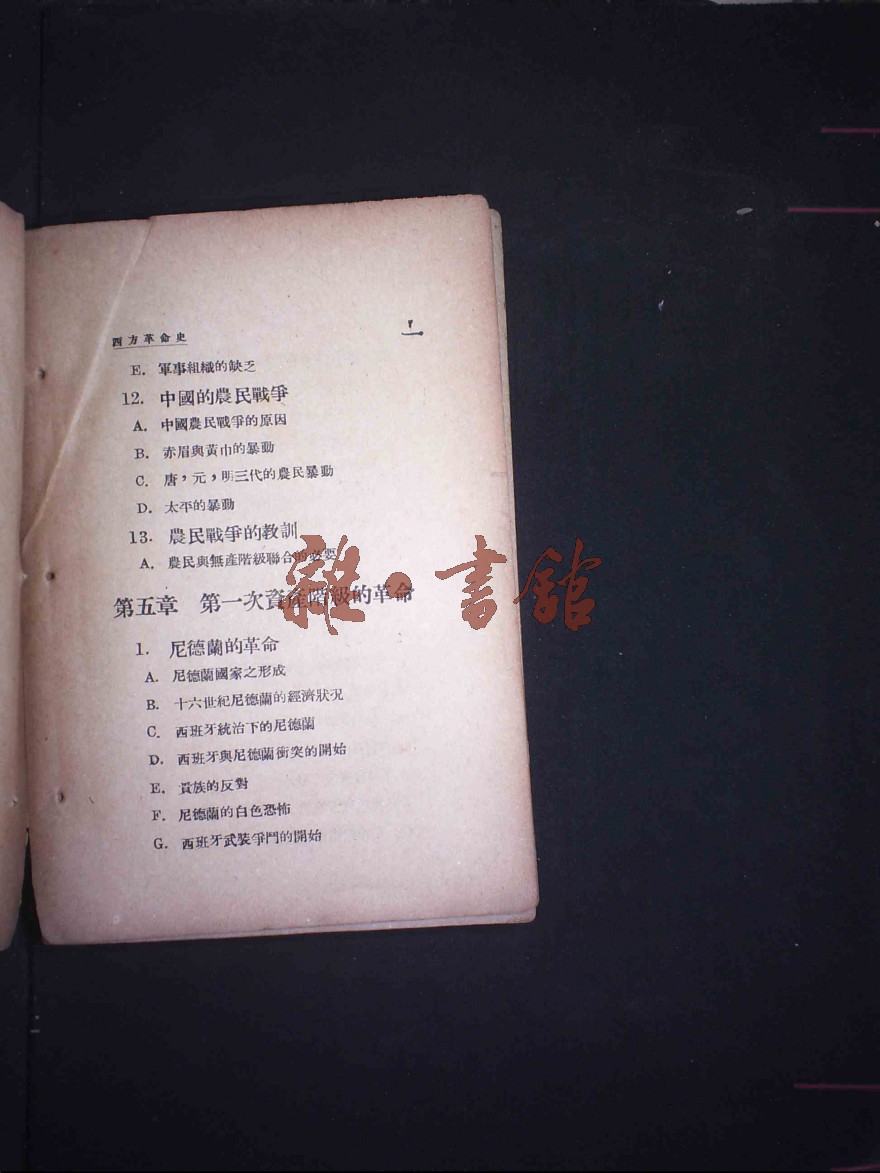 西方革命史
E. 軍事組織的缺乏
12. 中國的農民戰爭
A. 中國農民戰爭的原因
B. 赤眉與黃巾的暴動
C. 唐，元，明三代的農民暴動
D. 太平的暴動
13. 農民戰爭的教訓
A. 農民與無產階級聯合的必要
第五章 第一次資產階級的革命
1. 尼德蘭的革命
A. 尼德蘭國家之形成
B. 十六世紀尼德蘭的經濟狀況
C. 西班牙統治下的尼德蘭
D. 西班牙與尼德蘭衝突的開始
E. 貴族的反對
F. 尼德蘭的白色恐怖
G. 西班牙武裝爭鬥的開始
雜·書館